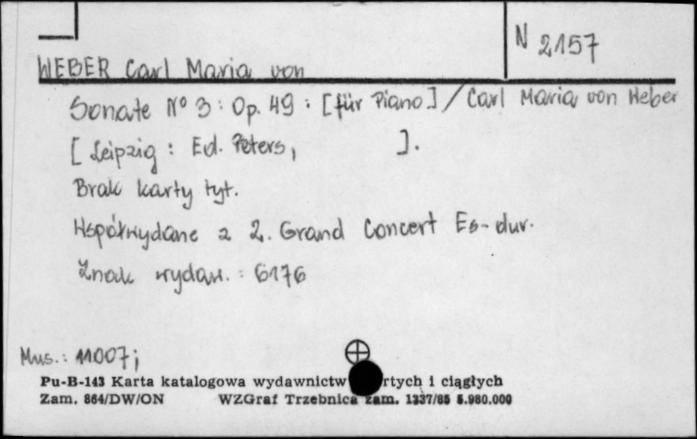 N 2157
WEBER Carl Maria von
Sonate Nº 3 : Op. 49 : [für Piano] / Carl Maria von Weber
[Leipzig : Ed. Peters,          ].
Brak karty tyt.
Współwydane z 2. Grand Concert Es-dur.
Znak wydaw. : 6176
Mus.: 11007;
Pu-B-143 Karta katalogowa wydawnictw rtych i ciągłych
Zam. 864/DW/ON WZGraf Trzebnica zam. 1337/85 5.980.000